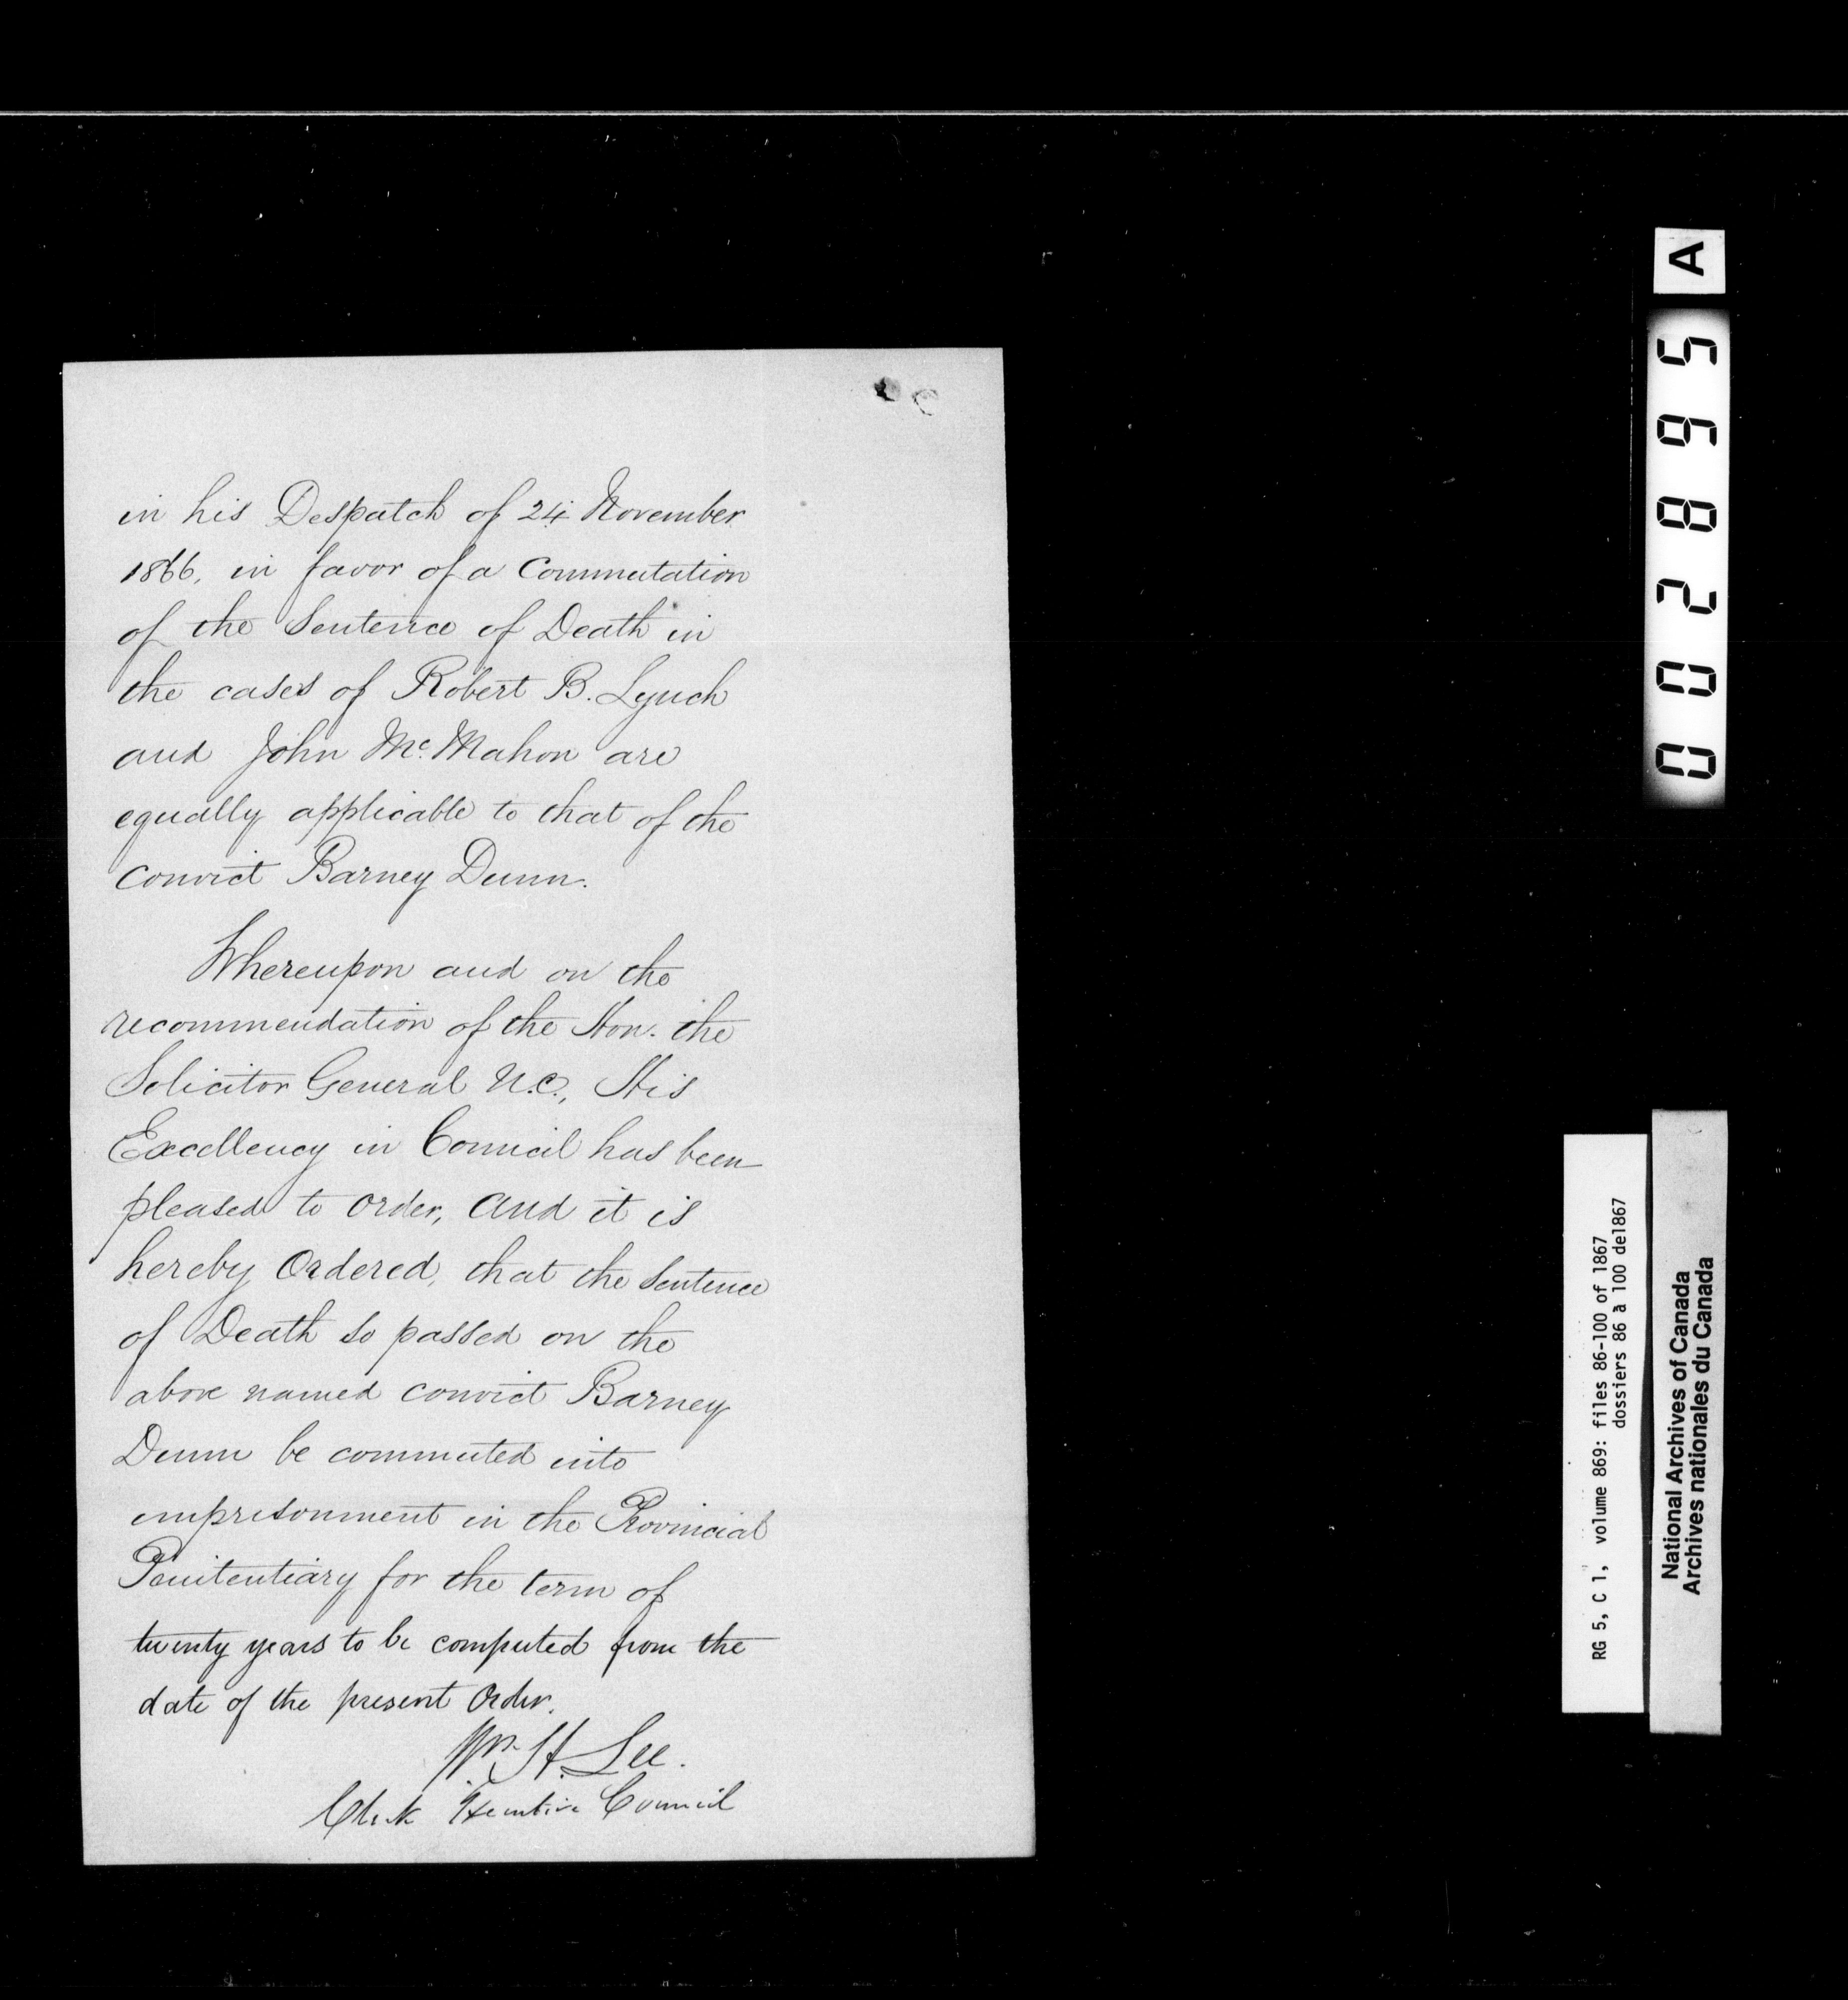 in his Despatch of 24 November
1866, in favor of a Commutation
of the Sentence of Death in
the cases of Robert B. Lynch
and John Mc. Mahon are
equally applicable to that of the
convict Barney Dunn.
Whereupon and on the
recommendation of the Hon. the
Solicitor General U.C., His
Excellency in Council has been
pleased to order, and it is
hereby Ordered, that the Sentence
of Death so passed on the
above named convict Barney
Dunn be commuted into
imprisonment in the Provincial
Penitentiary for the term of
twenty years to be computed from the
date of the present Order.
Wm. H. Lee.
Clerk Executive Council
A
002895
RG 5, C 1, volume 869: files 86-100 of 1867
dossiers 86 à 100 de1867
National Archives of Canada
Archives nationales du Canada